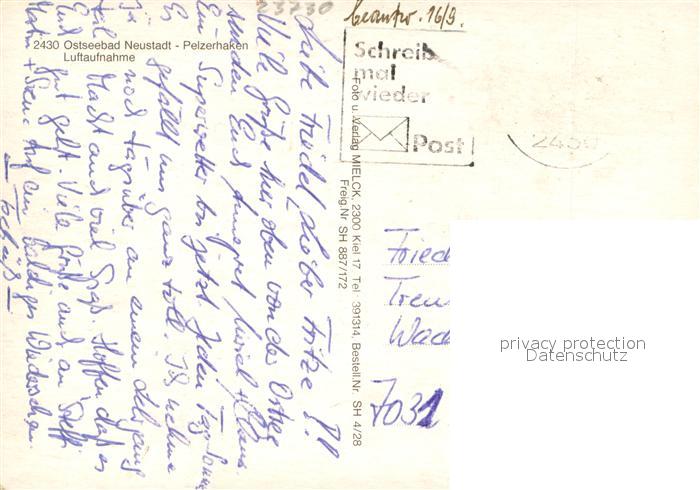 23730
beantw. 16/9.
2430 Ostseebad Neustadt - Pelzerhaken
Luftaufnahme
Schreib
mal
wieder
Post
2430
Foto u. Verlag MIELCK, 2300 Kiel 17 Tel. 391314, Bestell.Nr. SH 4/28
Freig.Nr SH 887/172
Liebe Friedel, Lieber Fritze!
Viele Grüße hier oben von der Ostsee
senden Euch Annegret, + Klaus.
Ein Superwetter bis jetzt. Jeden Tag Sonne
Es gefällt uns ganz toll. Ich nehme
ja noch tagsüber an einem Lehrgang
teil. Macht auch viel Spaß. Hoffen, daß es
Euch gut geht. Viele Grüße auch an Steffi
Auf ein baldiges Wiedersehen.
Tschüß
Fried
Tren
Wad
7031
privacy protection
Datenschutz